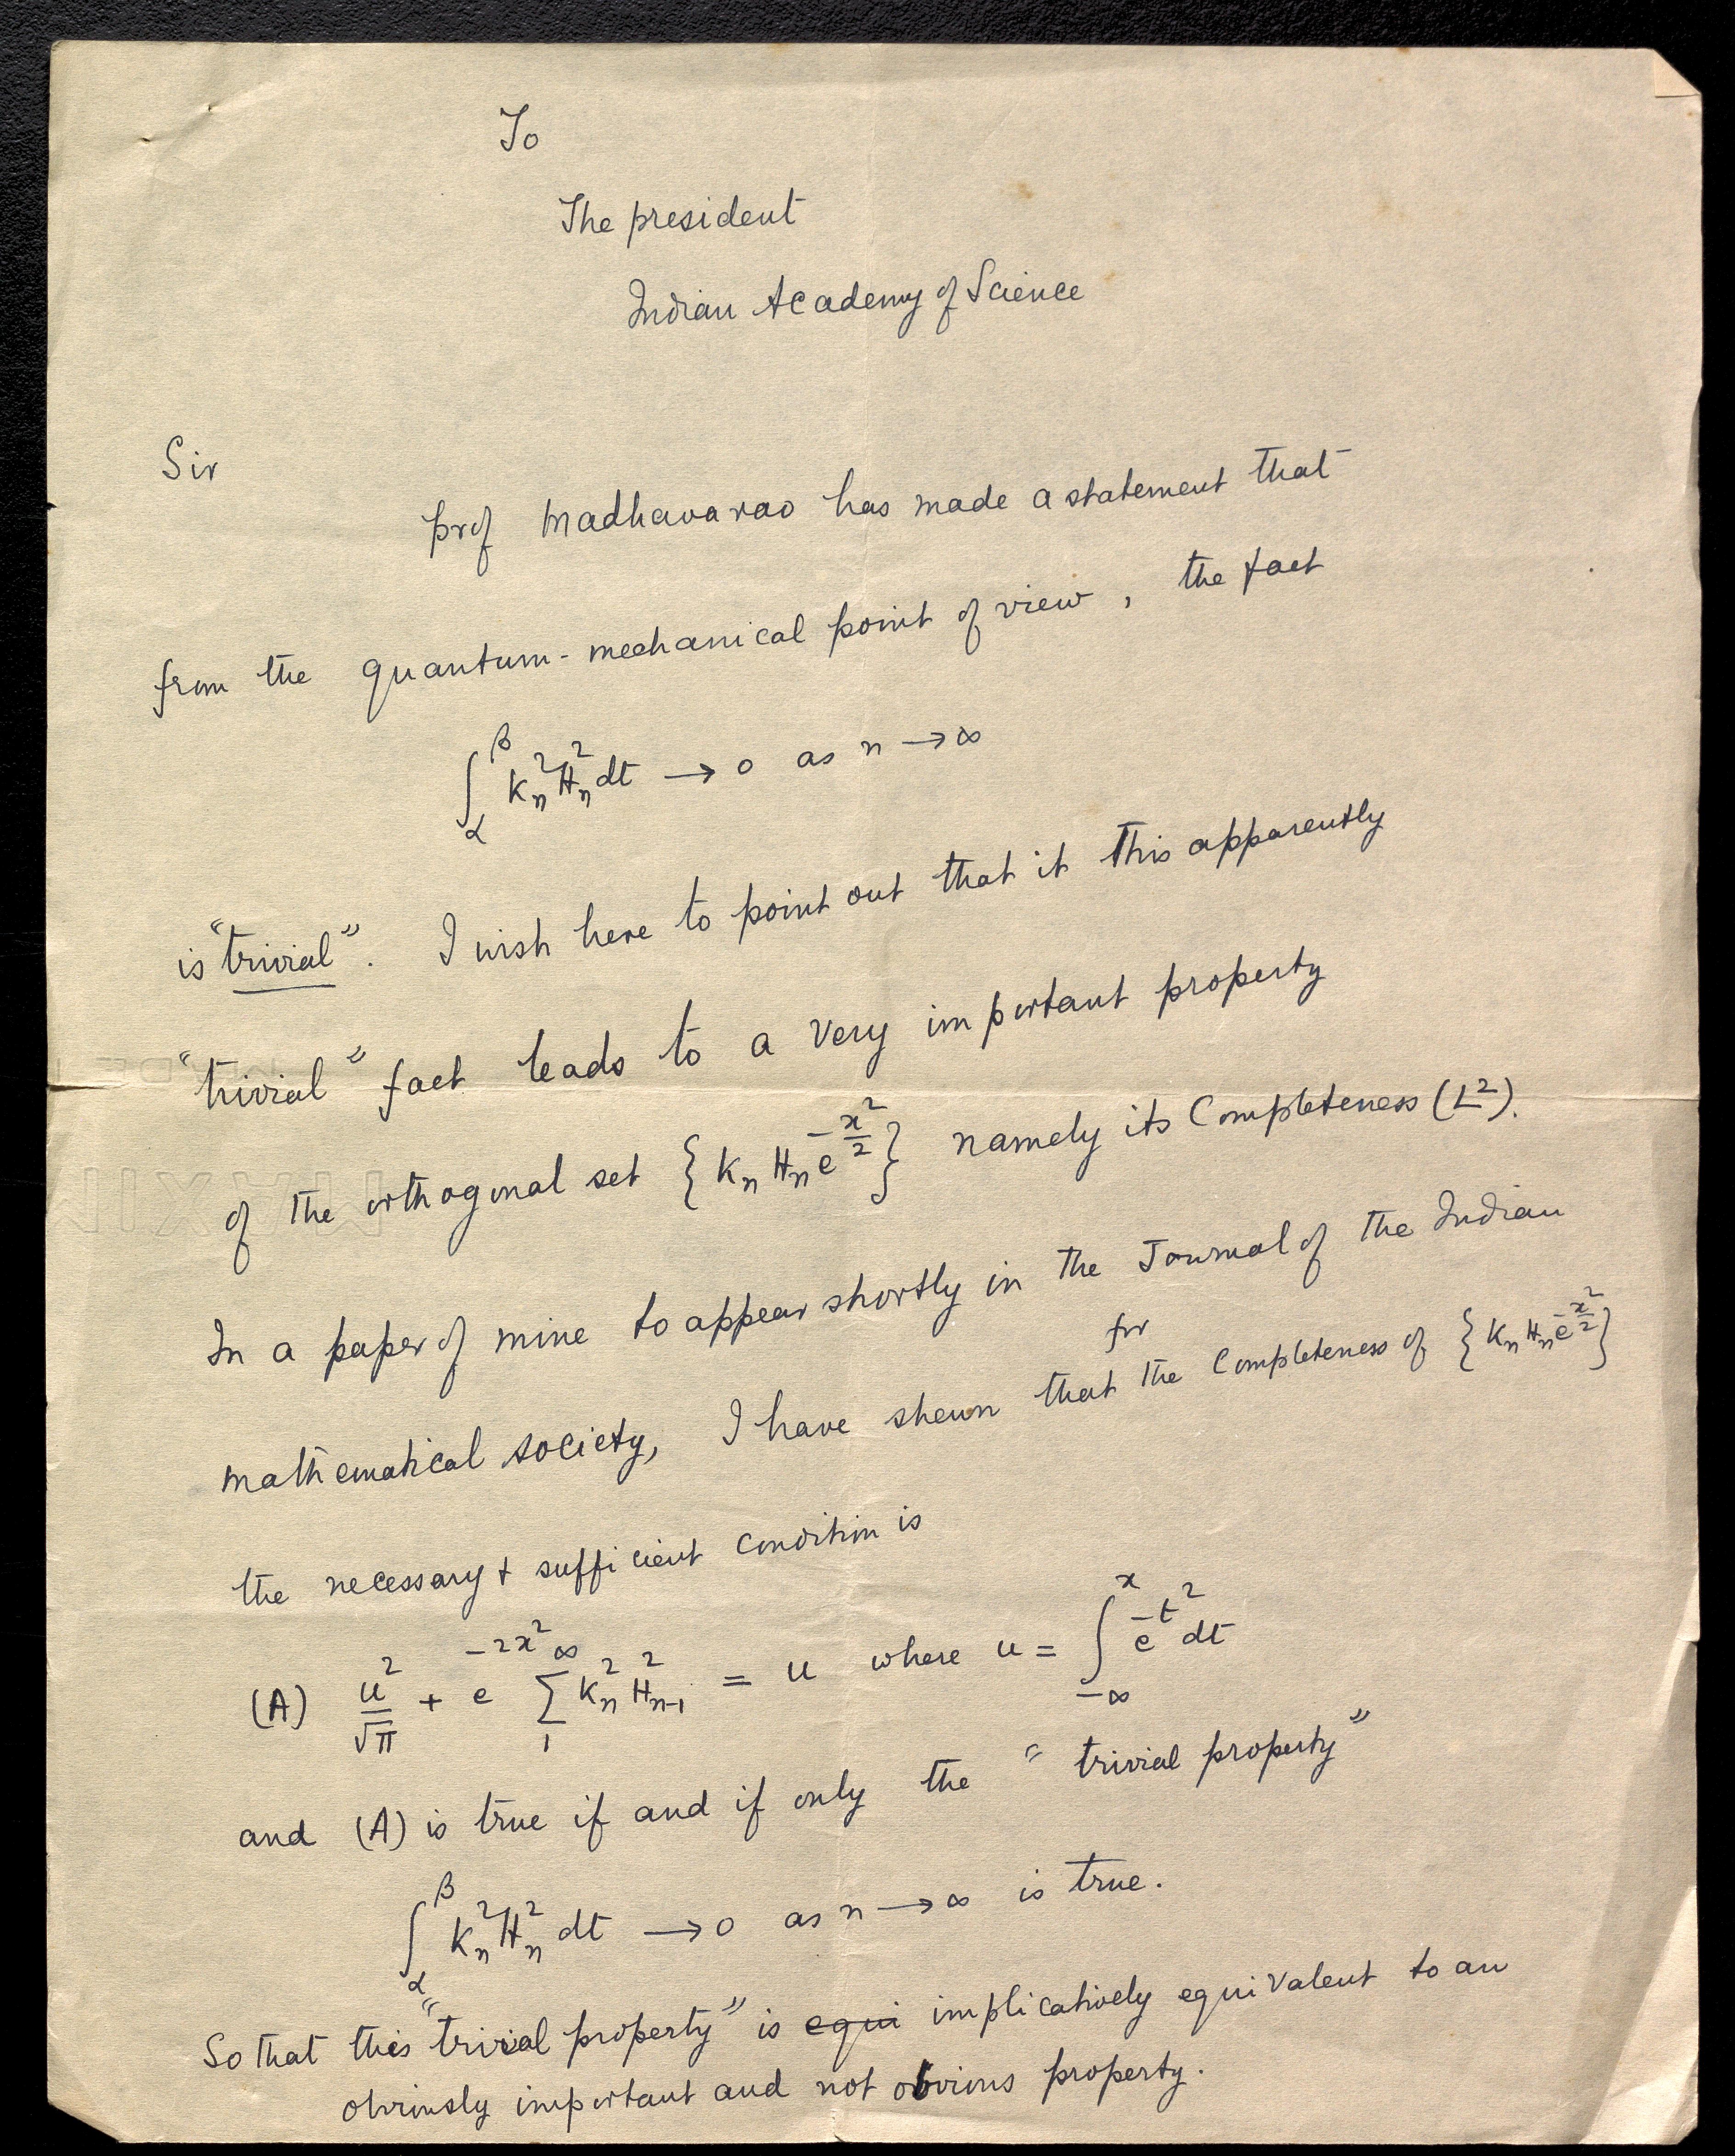 To
The president
Indian Academy of Science
Sir
prof Madhavarao has made a statement that
from the quantum-mechanical point of view, the fact
∫_α^β K_n^2 H_n^2 dt → 0 as n → ∞
is "trivial". I wish here to point out that it this apparently
"trivial" fact leads to a very important property
of the orthogonal set {K_n H_n e^{-x^2/2}} namely its Completeness (L^2).
In a paper of mine to appear shortly in the Journal of the Indian
for
mathematical society, I have shewn that the Completeness of {K_n H_n e^{-x^2/2}}
the necessary + sufficient condition is
(A) u^2/√π + e^{-2x^2} ∑_1^∞ K_n^2 H_{n-1}^2 = u where u = ∫_{-∞}^x e^{-t^2} dt
and (A) is true if and if only the "trivial property"
∫_α^β K_n^2 H_n^2 dt → 0 as n → ∞ is true.
So that this "trivial property" is equi implicatively equivalent to an
obviously important and not obvious property.